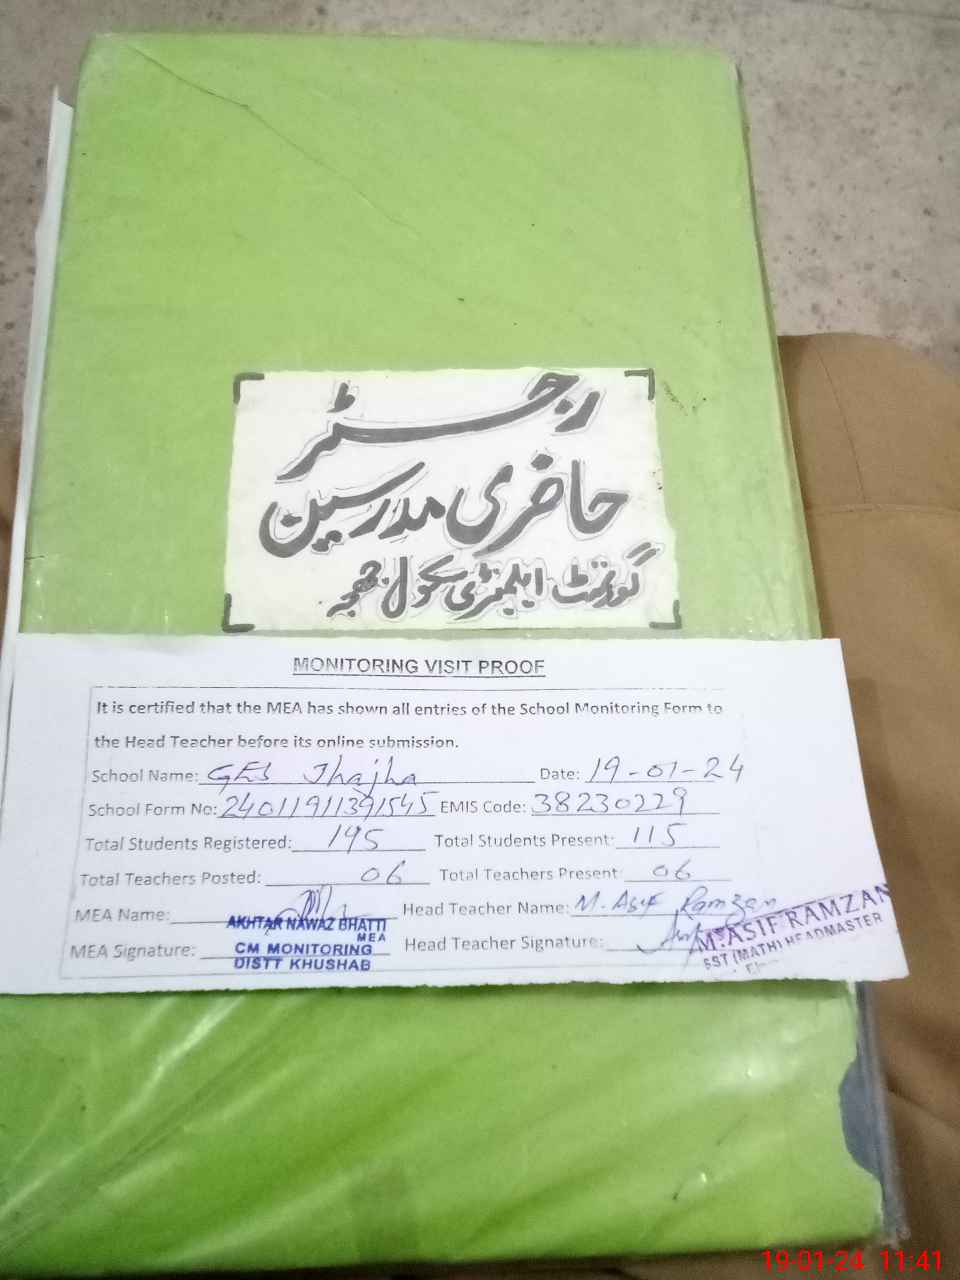 رجسٹر
حاضری مدرسین
گورنمنٹ ایلیمنٹری سکول جھجہ
MONITORING VISIT PROOF
It is certified that the MEA has shown all entries of the School Monitoring Form to
the Head Teacher before its online submission.
School Name: GES Jhajha Date: 19-01-24
School Form No: 24011911391545 EMIS Code: 38230229
Total Students Registered: 195 Total Students Present: 115
Total Teachers Posted: 06 Total Teachers Present: 06
MEA Name: Head Teacher Name: M. Asif Ramzan
AKHTAR NAWAZ BHATTI
MEA
MEA Signature: CM MONITORING Head Teacher Signature:
DISTT KHUSHAB
M. ASIF RAMZAN
SST (MATH) HEADMASTER
19-01-24 11:41